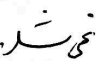 نمی شد